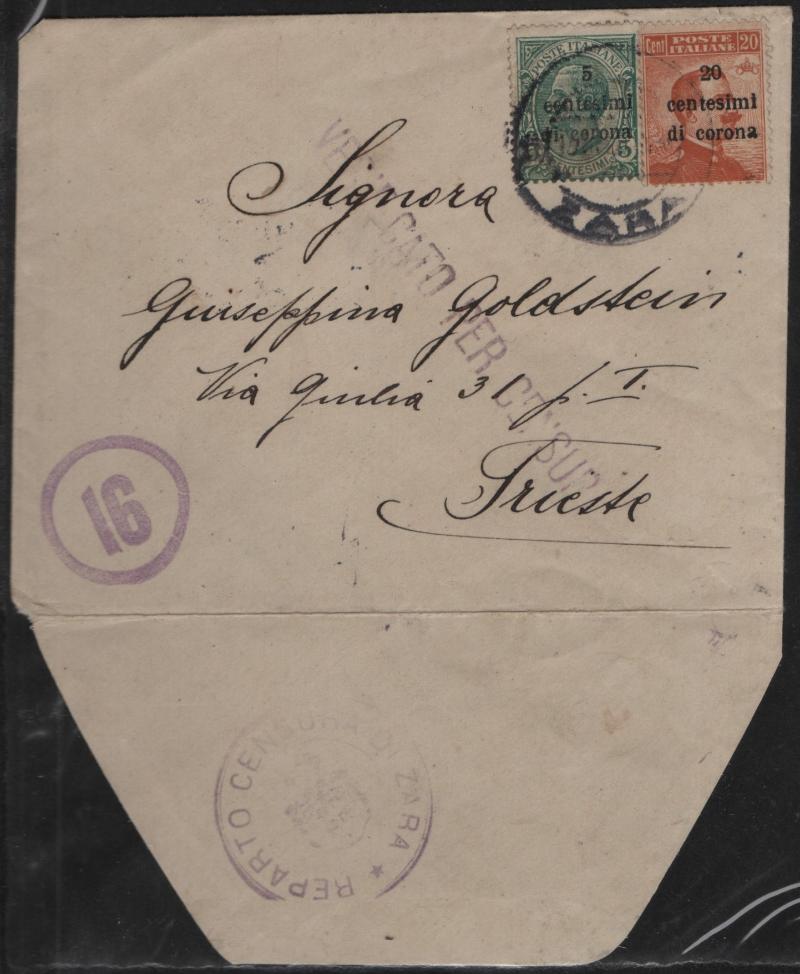 POSTE ITALIANE
5
centesimi
di corona
5
CENTESIMI
Cent POSTE ITALIANE 20
20
centesimi
di corona
ZARA
VERIFICATO PER CENSURA
Signora
Giuseppina Goldstein
Via Giulia 31 p. I.
Trieste
16
REPARTO CENSURA DI ZARA ★